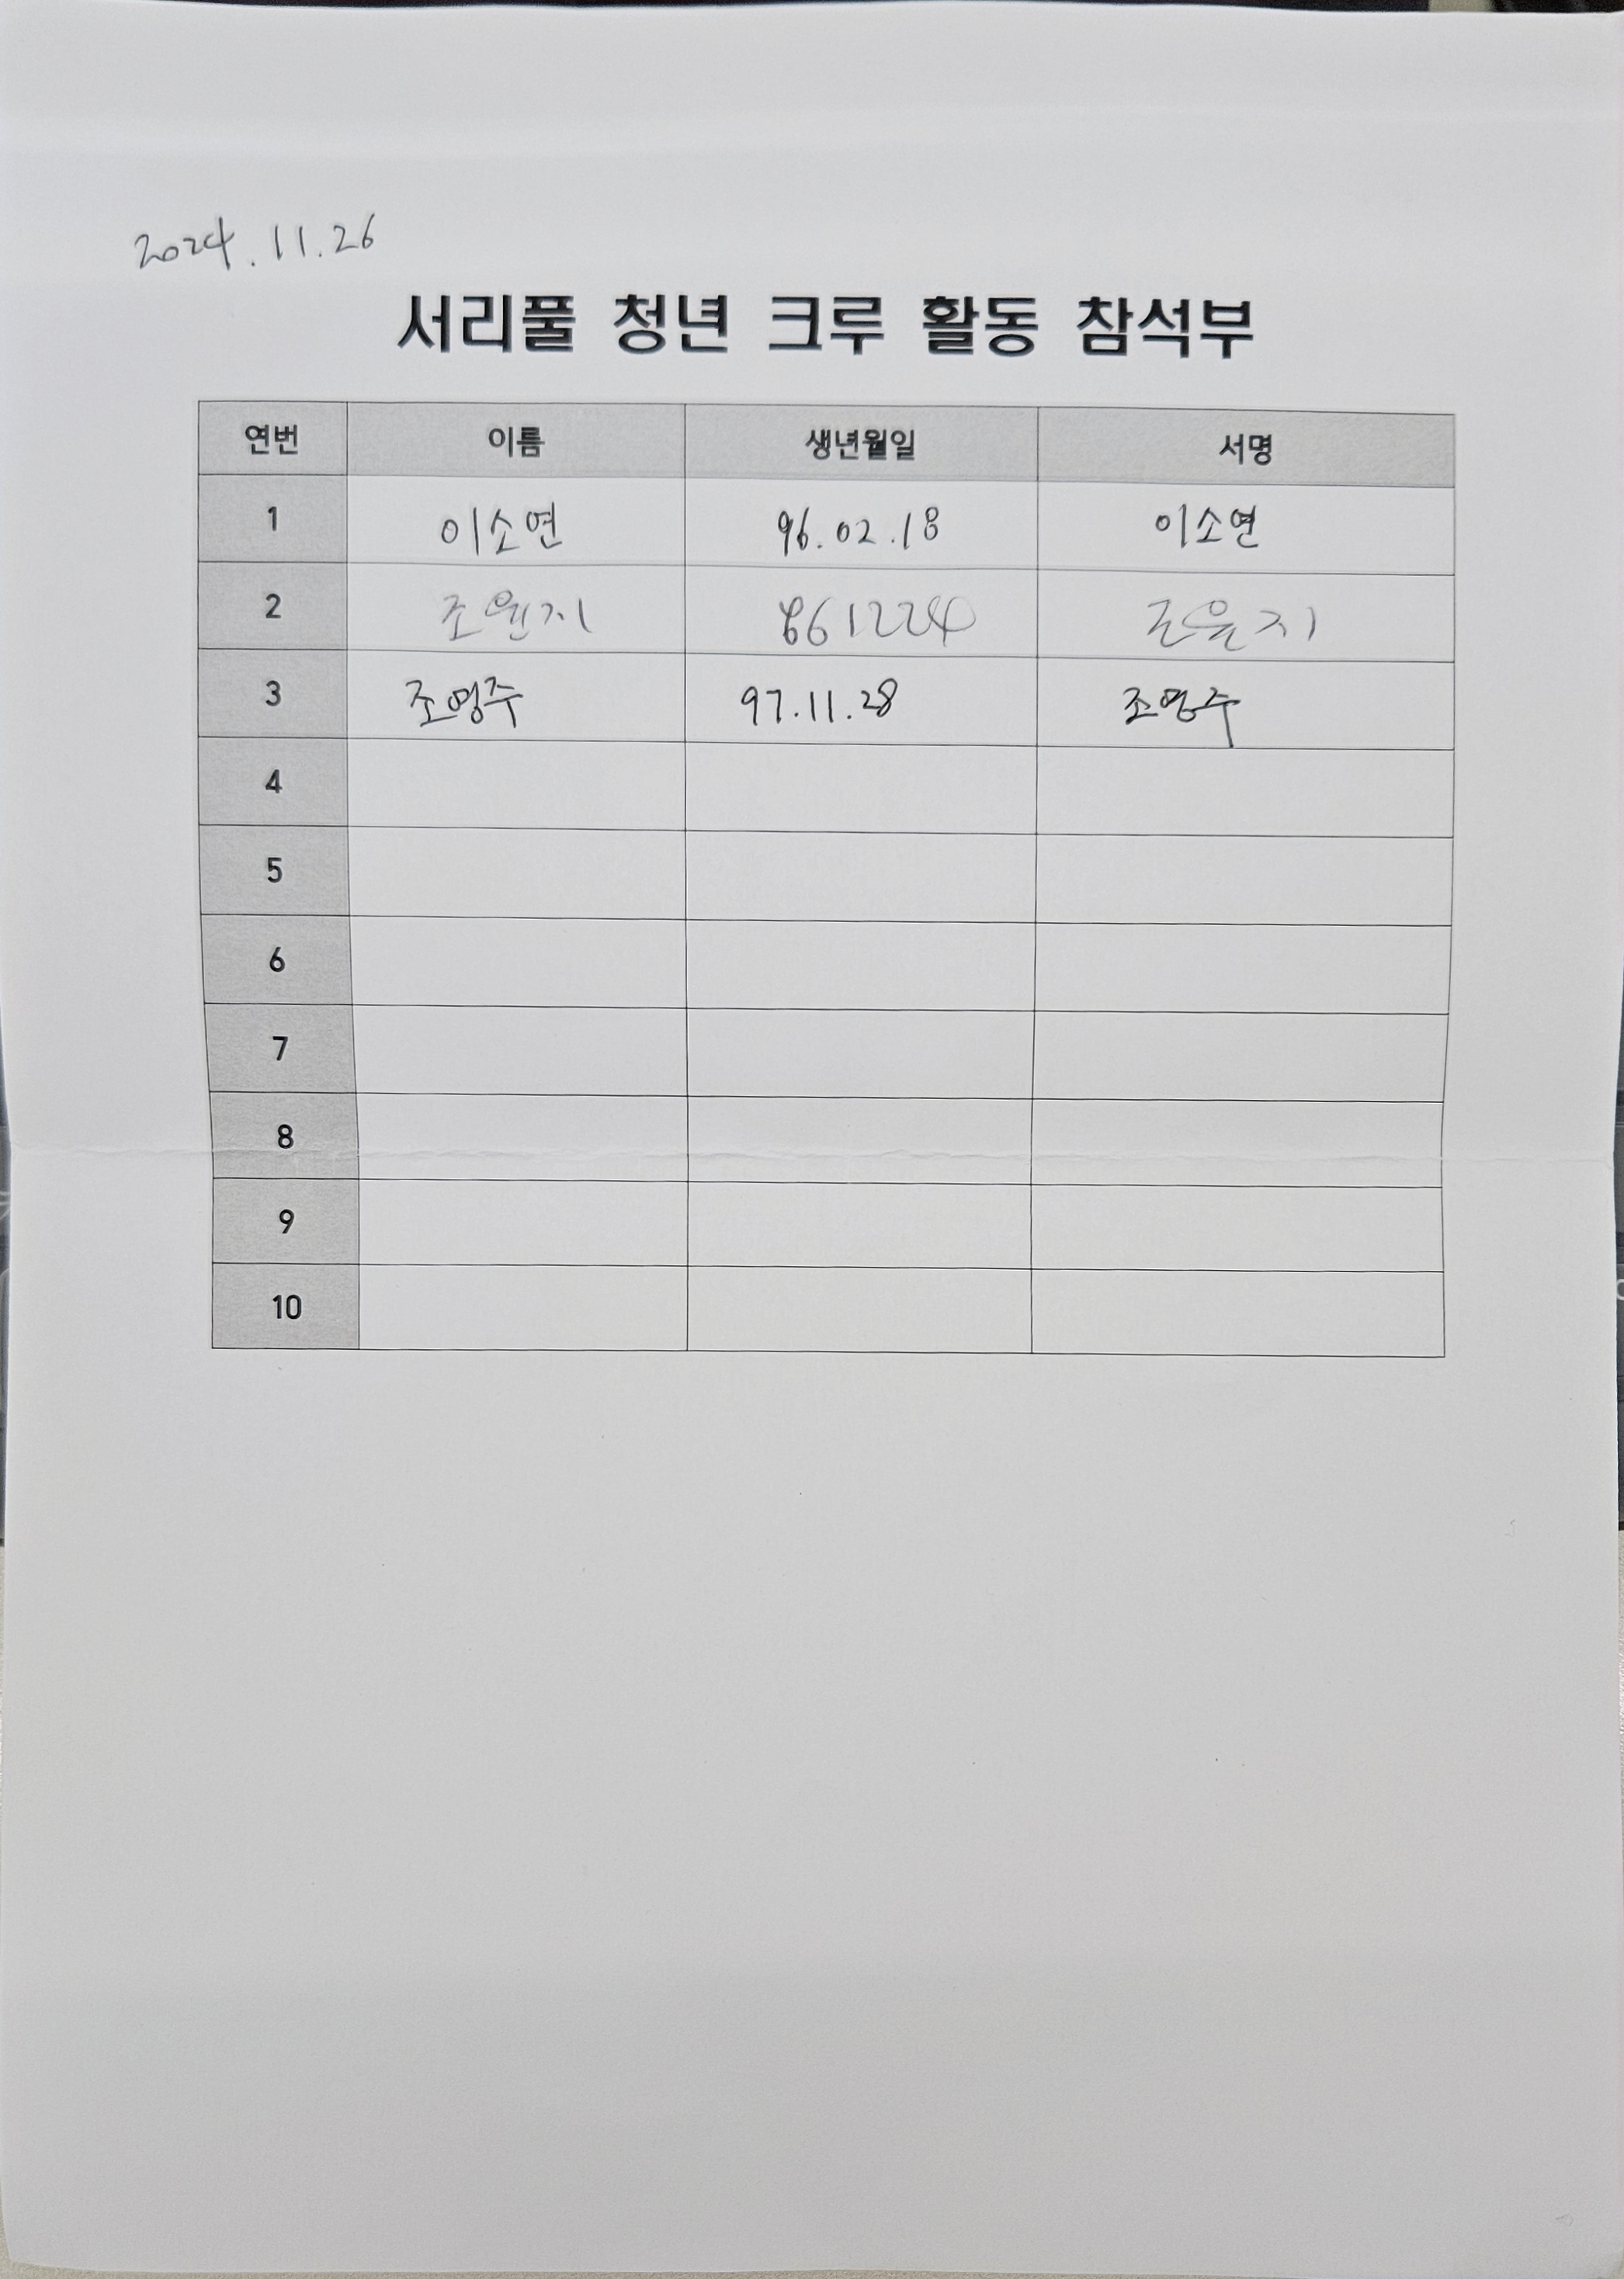 2024.11.26
서리풀 청년 크루 활동 참석부
연번 이름 생년월일 서명
1 이소연 96.02.18 이소연
2 조윤지 861224 조윤지
3 조영주 97.11.28 조영주
4
5
6
7
8
9
10